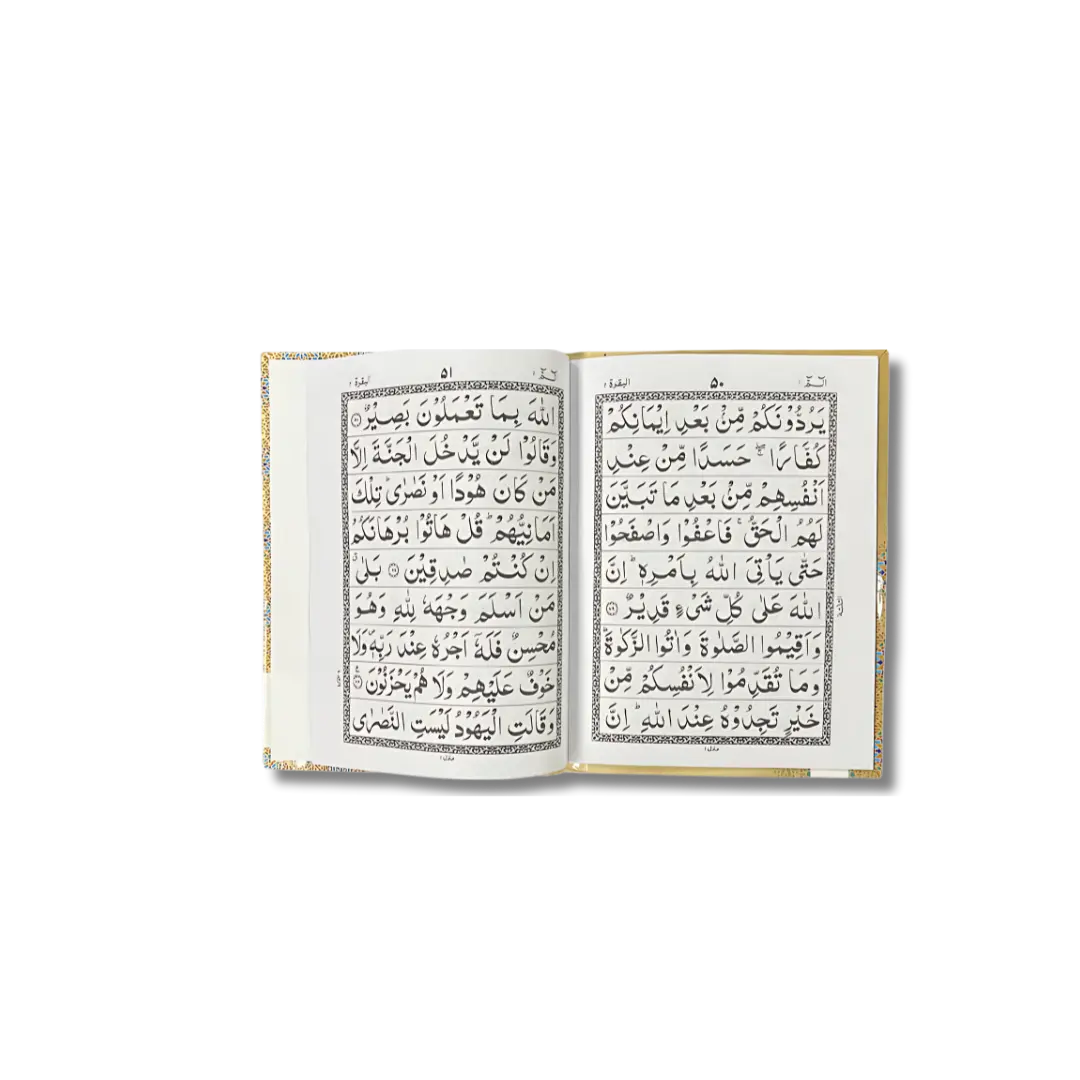 الٓمّٓ ١
٥٠
البقرة ٢
يَرُدُّوْنَكُمْ مِّنْۢ بَعْدِ اِيْمَانِكُمْ
كُفَّارًا ۖۚ حَسَدًا مِّنْ عِنْدِ
اَنْفُسِهِمْ مِّنْۢ بَعْدِ مَا تَبَيَّنَ
لَهُمُ الْحَقُّ ۚ فَاعْفُوْا وَاصْفَحُوْا
حَتّٰى يَاْتِىَ اللّٰهُ بِاَمْرِهٖ ؕ اِنَّ
اللّٰهَ عَلٰى كُلِّ شَىْءٍ قَدِيْرٌ ﴿١٠٩﴾
وَاَقِيْمُوا الصَّلٰوةَ وَاٰتُوا الزَّكٰوةَ ؕ
وَمَا تُقَدِّمُوْا لِاَنْفُسِكُمْ مِّنْ
خَيْرٍ تَجِدُوْهُ عِنْدَ اللّٰهِ ؕ اِنَّ
منزل ١
الٓمّٓ ١
٥١
البقرة ٢
اللّٰهَ بِمَا تَعْمَلُوْنَ بَصِيْرٌ ﴿١١٠﴾
وَقَالُوْا لَنْ يَّدْخُلَ الْجَنَّةَ اِلَّا
مَنْ كَانَ هُوْدًا اَوْ نَصٰرٰى ؕ تِلْكَ
اَمَانِيُّهُمْ ؕ قُلْ هَاتُوْا بُرْهَانَكُمْ
اِنْ كُنْتُمْ صٰدِقِيْنَ ﴿١١١﴾ بَلٰى ۗ
مَنْ اَسْلَمَ وَجْهَهٗ لِلّٰهِ وَهُوَ
مُحْسِنٌ فَلَهٗٓ اَجْرُهٗ عِنْدَ رَبِّهٖ ۪ وَلَا
خَوْفٌ عَلَيْهِمْ وَلَا هُمْ يَحْزَنُوْنَ ﴿١١٢﴾
وَقَالَتِ الْيَهُوْدُ لَيْسَتِ النَّصٰرٰى
منزل ١